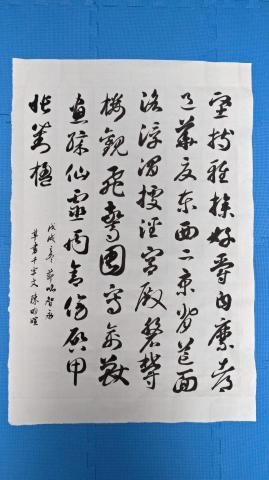 堅持雅操好爵自縻都
邑華夏東西二京背芒面
洛浮渭據涇宮殿盤鬱
樓觀飛驚圖寫禽獸
畫綵仙靈丙舍傍啟甲
帳對楹
戊戌 節臨智永
草書千字文 陳明